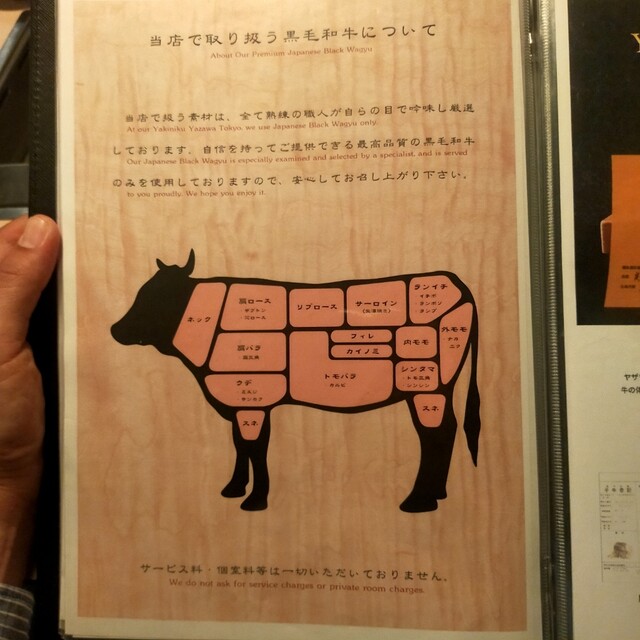 当店で取り扱う黒毛和牛について
About Our Premium Japanese Black Wagyu
当店で扱う素材は、全て熟練の職人が自らの目で吟味し厳選
At our Yakiniku Yazawa Tokyo, we use Japanese Black Wagyu only.
しております。自信を持ってご提供できる最高品質の黒毛和牛
Our Japanese Black Wagyu is especially examined and selected by a specialist, and is served
のみを使用しておりますので、安心してお召し上がり下さい。
to you proudly. We hope you enjoy it.
ネック
肩ロース
ザブトン
リブロース
サーロイン
ランイチ
イチボ
ランプ
外モモ
フィレ
カイノミ
内モモ
肩バラ
トモバラ
カルビ
シンタマ
トモ三角
シンシン
ウデ
ミスジ
スネ
スネ
サービス料・個室料等は一切いただいておりません。
We do not ask for service charges or private room charges.
Y
ヤザ
牛の個